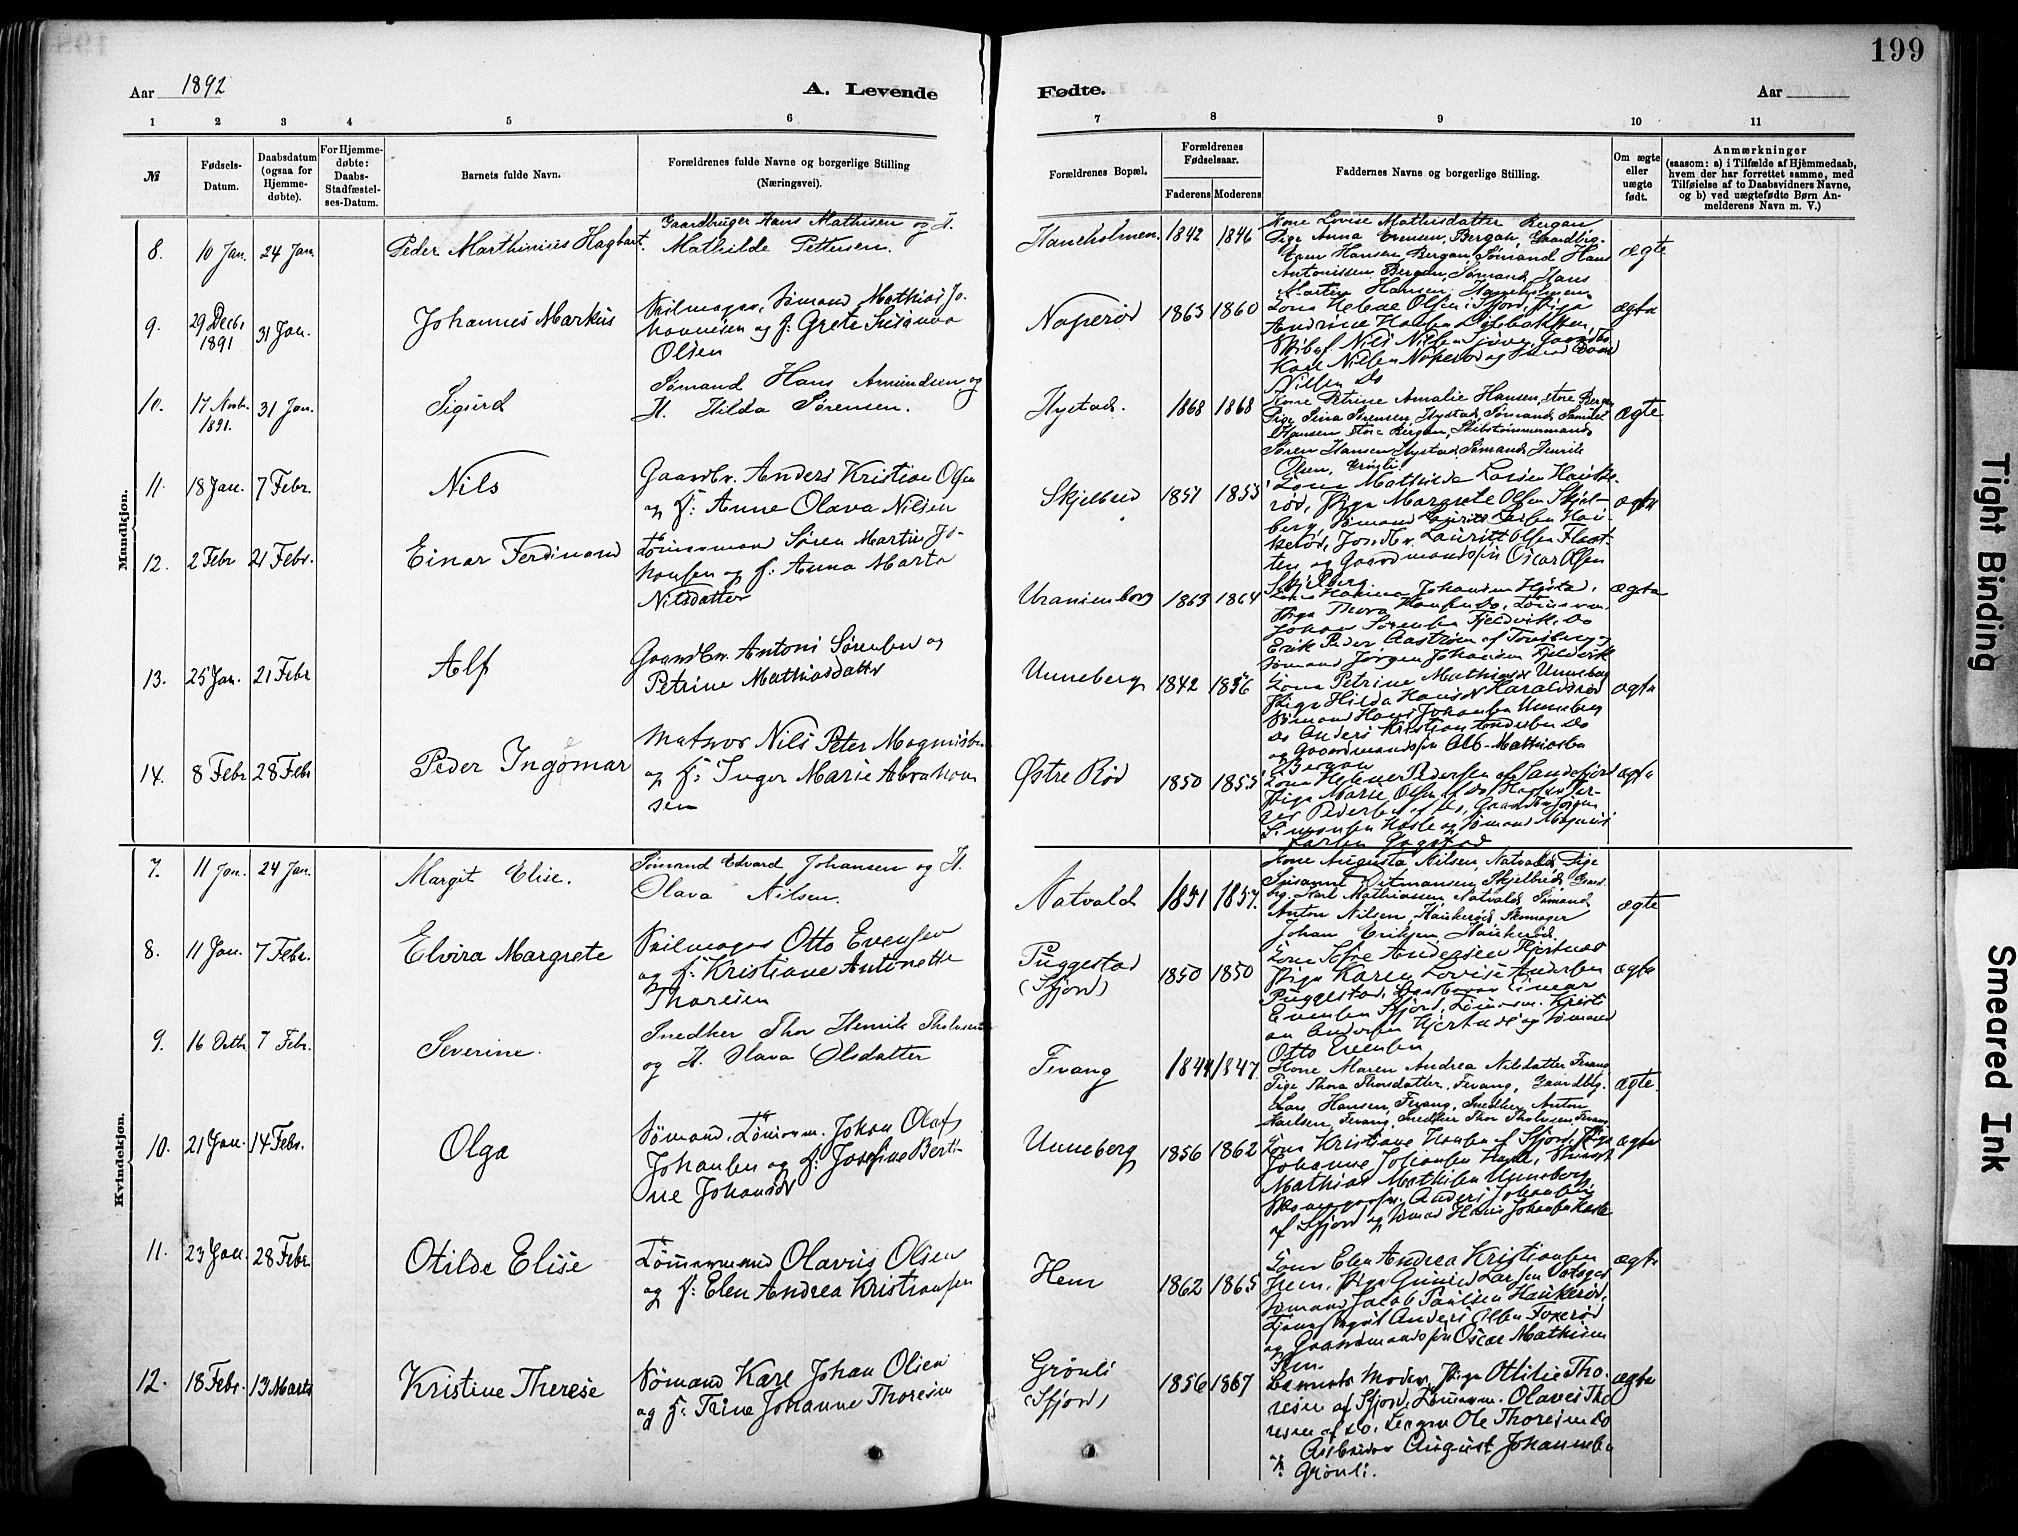 199
Aar 1892
A. Levende
Fødte.
Aar
1 2 3 4 5 6 7 8 9 10 11
№
Fødsels-
Datum.
Daabsdatum
(ogsaa for
Hjemme-
døbte).
For Hjemme-
døbte:
Daabs-
Stadfæstel-
ses-Datum.
Barnets fulde Navn.
Forældrenes fulde Navne og borgerlige Stilling
(Næringsvei).
Forældrenes Bopæl.
Forældrenes
Fødselsaar.
Faderens Moderens
Faddernes Navne og borgerlige Stilling.
Om ægte
eller
uægte
født.
Anmærkninger
(saasom: a) i Tilfælde af Hjemmedaab,
hvem der har forrettet samme, med
Tilføielse af to Daabsvidners Navne,
og b) ved uægtefødte Børn An-
melderens Navn m. V.)
Mandkjøn.
8. 10 Jan. 24 Jan. Peder Marthinius Hagbart.
Gaardbruger Hans Mathisen og H.
Mathilde Pettersen.
Haneholmen. 1842 1846
Kone Lovise Mathisdatter Bergan
Pige Anna Evensen, Bergan, Gaardbrg.
Even Hansen Bergan, Sømand Hans
Antonissen Bergan, Sømand Hans
Martin Hansen, Haneholmen
ægte
9. 29 Decb. 1891 31 Jan. Johannes Markus
Seilmager, Sømand Mathias Jo-
hannesen og H: Grete Susanna
Olsen
Noperød 1863 1860
Kona Helene Olsen i Sfjord, Pige
Nils Nilsen
Karl Nilsen Noperød og
Nilsen Do
ægte
10. 17 Novb. 1891. 31 Jan. Sigurd
Sømand Hans Amundsen og
H. Hilda Sørensen.
Hystad. 1868 1868
Kone Petrine Amalie Hansen, store Bergan
Pige Sina Sørensen Hystad, Sømand Samuel
Hansen store Bergan, Skibstømmermand
Søren Hansen Hystad, Sømand Henrik
Olsen, Grønli
ægte
11. 18 Jan. 7 Febr. Nils
Gaardbr. Anders Kristian Olsen
og H: Anne Olava Nilsen
Skjelbred 1851 1855
Kona Mathilda Larsen Hauke-
rød, Pige Margrete Olsen Skjel-
berg, Sømand Laurits Larsen Hau-
kerød, Jordbr. Lauritz Olsen Flaat-
ten og Gaardmandssøn Oscar Olsen
Skjelberg.
ægte
12. 2 Febr 21 Febr. Einar Ferdinand
Tømmermand Søren Martin Jo-
hansen og H: Anna Marta
Nilsdatter
Uranienborg 1863 1864
Kona Hanna Johansen Hystad,
Pige Thora Hansen Do, Tømmerm.
Johan Sørensen Fjeldvik, Do
Erik Peder Aastrøm af Tønsberg og
Sømand Jørgen Johansen Fjeldvik
ægte
13. 25 Jan. 21 Febr Alf
Gaardbr. Antoni Sørensen og
Petrine Mathiasdatter
Unneberg 1842 1856
Kona Petrine Mathiasdr Unneberg
Pige Hilda Hansdr Haraldsrød
Sømand Hans Johansen Unneberg
Do Anders Kristian Andersen Do
og Gaardmandssøn Alb. Mathiasen
Bergan
ægte
14. 8 Febr 28 Febr Peder Ingomar
Matros Nils Peter Magnusen
og H: Inger Marie Abraham-
sen
Østre Rød 1850 1855
Kona Helene Pedersen af Sandefjord
Pige Marie Olsen af Do,
Pedersen af Do, Gaardbr. Jørgen
Simonsen Hasle og Sømand Magnus
Larsen Gogstad
ægte
Kvindekjøn.
7. 11 Jan. 24 Jan. Margit Elise.
Sømand Edvard Johansen og H.
Olava Nilsen.
Natvald 1851 1857.
Kone Augusta Nilsen, Natvald, Pige
Susanne Ditmansen, Skjelbred, Gaard-
brg. Karl Mathiassen Natvald, Sømand
Anton Nilsen, Haukerød, Skomager
Johan Eriksen Haukerød.
ægte
8. 11 Jan. 7 Febr. Elvira Margrete
Seilmager Otto Evensen
og H: Kristiane Antonette
Thoresen
Puggestad
(Sfjord) 1850 1850
Kona Sofie Andersen Hjertnæs
Pige Karen Lovise Andersen
Puggestad, Einar
Evensen Sfjord, Tømmerm. Kristi-
an Andersen Hjertnæs og Sømand
Otto Evensen
ægte
9. 16 Octbr 7 Febr. Severine.
Snedker Thor Henrik Tholvsen
og H. Olava Olsdatter
Fevang 1844 1847.
Kone Maren Andrea Nilsdatter Fevang
Pige Thora Thorsdatter, Fevang, Gaardbrg.
Lars Hansen, Fevang, Snedker Anton
Karlsen, Fevang, Snedker Thor Tholvsen, Fevang
ægte.
10. 21 Jan. 14 Febr. Olga
Sømand, Tømmerm. Johan Olaf
Johansen og H: Josefine Berti-
ne Johansdr
Unneberg 1856 1862
Kona Kristiane Hansen af Sfjord, Pige
Johanne Johansen
Mathias Mathisen Unneberg,
Anders Johansen
af Sfjord og Sømand Hans Johansen Hasle
ægte
11. 23 Jan. 28 Febr Otilde Elise
Tømmermand Olavus Olsen
og H: Elen Andrea Kristiansen
Hem 1862 1865
Kona Elen Andrea Kristiansen
Hem, Pige Gunild Larsen
Sømand Jacob Paulsen Haukerød,
Anders Olsen Foxerød
og Gaardmandssøn Oscar Mathisen
Hem.
ægte
12. 18 Febr. 13 Marts Kristine Therese
Sømand Karl Johan Olsen
og H: Trine Johanne Thoresen
Grønli
(Sfjord) 1856 1867
Barnets Moder, Pige Otilie Tho-
resen af Sfjord, Tømmerm. Olaves Tho-
resen af Do. Ole Thoresen Do
og Arbeider August Johannesen
Grønli.
ægte
Tight Binding
Smeared Ink